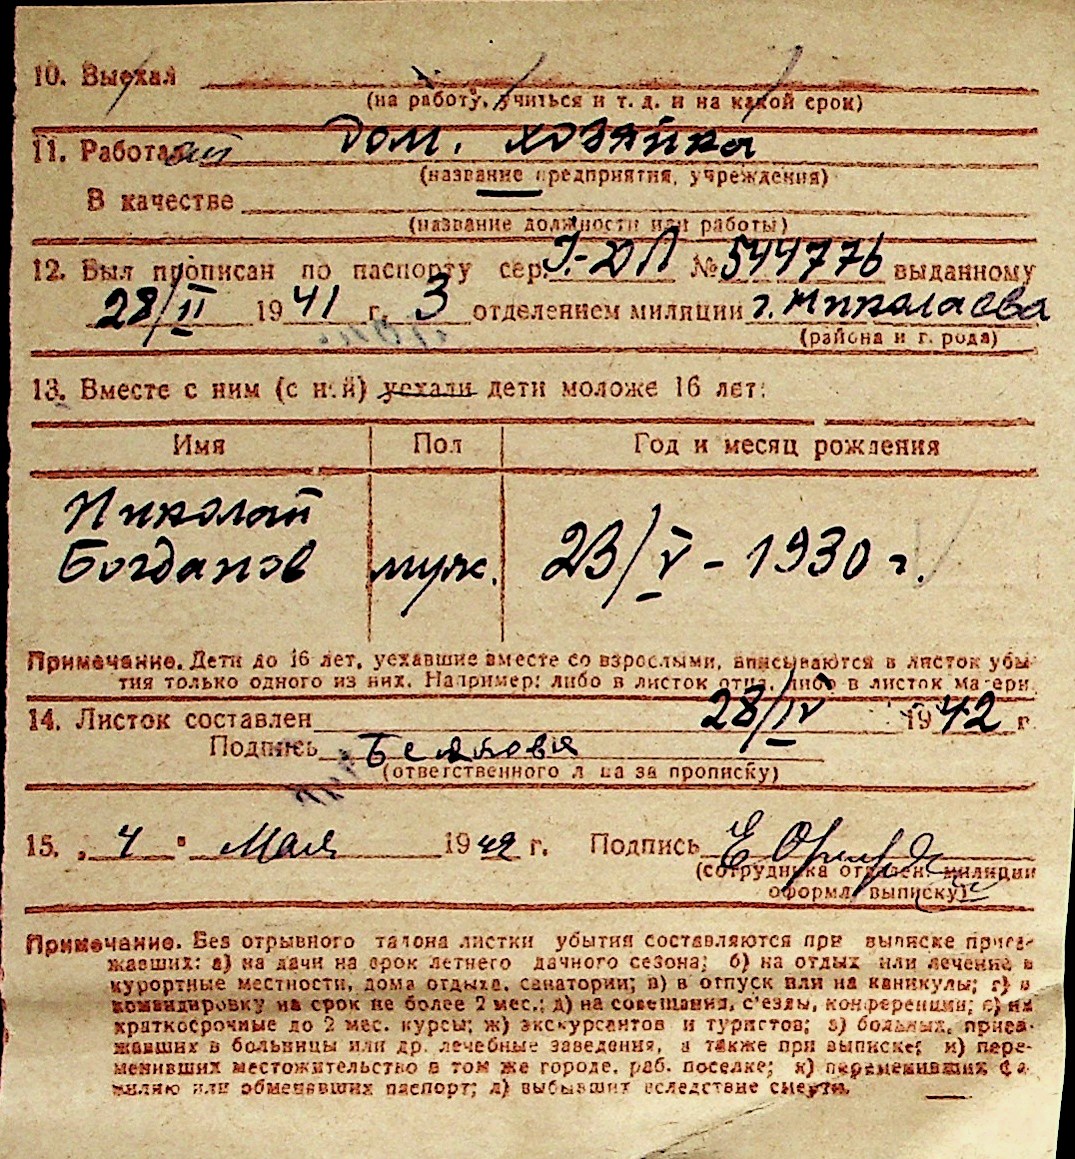 10. Выехал
(на работу, учиться и т. д. и на какой срок)
11. Работает дом. хозяйка
(название предприятия, учреждения)
В качестве
(название должности или работы)
12. Был прописан по паспорту сер. I-ДЛ № 544776 выданному
28/II 1941 г. 3 отделением милиции г. Николаева
(района и города)
13. Вместе с ним (с ней) уехали дети моложе 16 лет:
Имя Пол Год и месяц рождения
Николай
Богданов муж. 23/V - 1930 г.
Примечание. Дети до 16 лет, уехавшие вместе со взрослыми, вписываются в листок убы-
тия только одного из них. Например: либо в листок отца, либо в листок матери.
14. Листок составлен 28/IV 1942 г.
Подпись Белякова
(ответственного лица за прописку)
15. „4" Мая 1942 г. Подпись
(сотрудника отделен. милиции
оформл. выписку)
Примечание. Без отрывного талона листки убытия составляются при выписке приез-
жавших: а) на дачи на срок летнего дачного сезона; б) на отдых или лечение в
курортные местности, дома отдыха, санатории; в) в отпуск или на каникулы; г) в
командировку на срок не более 2 мес.; д) на совещания, с'езды, конференции; е) на
краткосрочные до 2 мес. курсы; ж) экскурсантов и туристов; з) больных, приез-
жавших в больницы или др. лечебные заведения, а также при выписке; и) пере-
менивших местожительство в том же городе, раб. поселке; к) переменивших фа-
милию или обменявших паспорт; л) выбывших вследствие смерти.